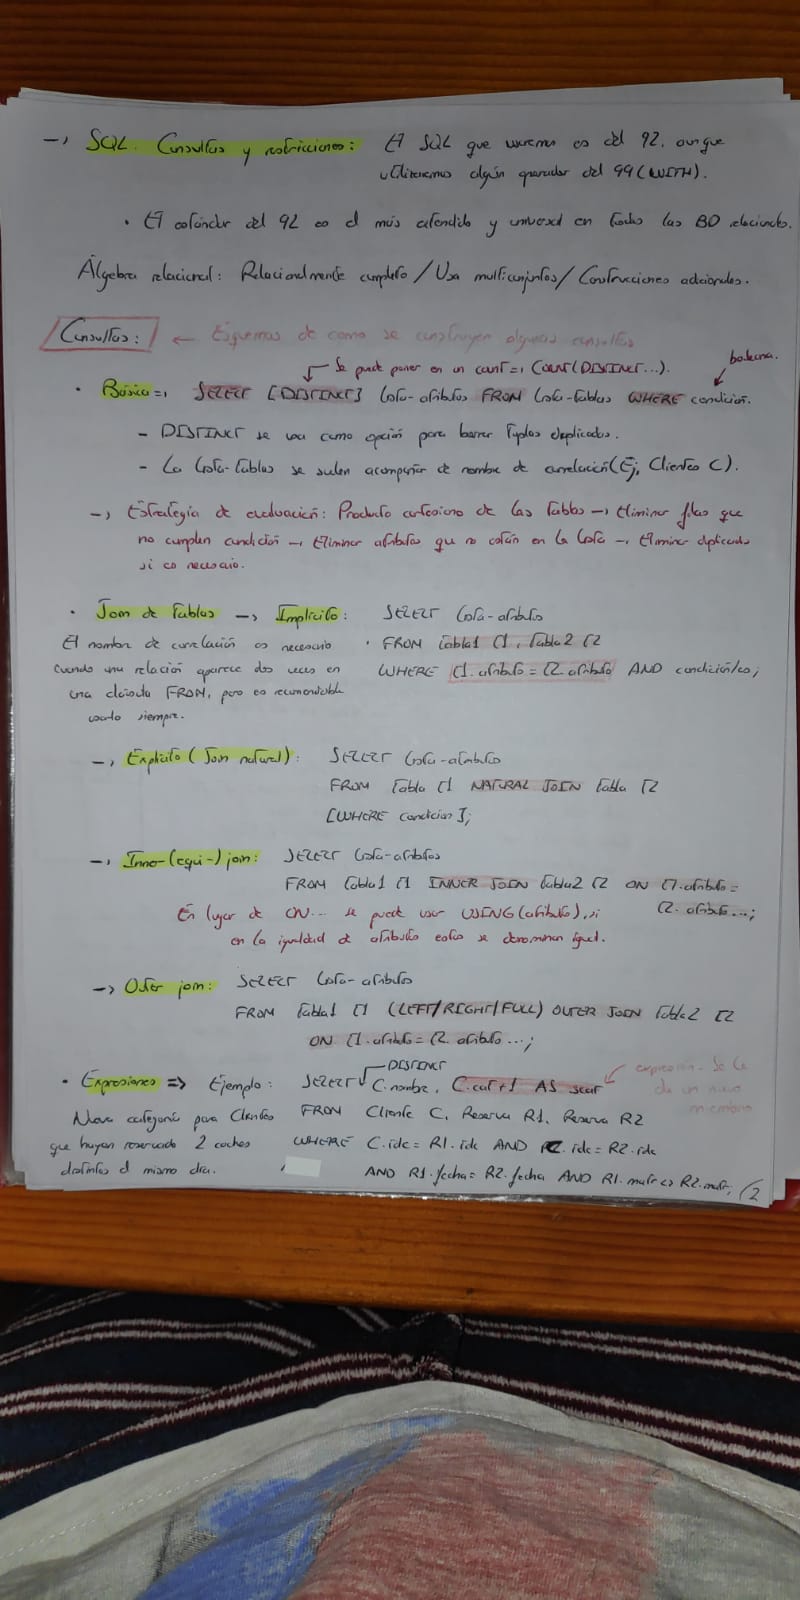 → SQL. Consultas y restricciones: El SQL que usaremos es del 92, aunque
utilizaremos algún operador del 99 (WITH).
• El estándar del 92 es el más extendido y universal en todas las BD relacionales.
Álgebra relacional: Relacionalmente completo / Usa multiconjuntos / Construcciones adicionales.
Consultas: ← Esquemas de como se construyen algunas consultas
Se puede poner en un count => COUNT(DISTINCT...). booleana.
• Básica => SELECT [DISTINCT] lista-atributos FROM lista-tablas WHERE condición.
- DISTINCT se usa como opción para borrar tuplas duplicadas.
- La lista-tablas se suelen acompañar de nombre de correlación (Ej, Clientes C).
→ Estrategia de evaluación: Producto cartesiano de las tablas → Eliminar filas que
no cumplen condición → Eliminar atributos que no están en la lista → Eliminar duplicados
si es necesario.
• Join de tablas → Implícito: SELECT lista-atributos
El nombre de correlación es necesario • FROM tabla1 T1, tabla2 T2
cuando una relación aparece dos veces en WHERE T1.atributo = T2.atributo AND condición/es;
una claúsula FROM, pero es recomendable
usarlo siempre.
→ Explícito (Join natural): SELECT lista-atributos
FROM tabla T1 NATURAL JOIN tabla T2
[WHERE condicion];
→ Inner-(equi-) join: SELECT lista-atributos
FROM tabla1 T1 INNER JOIN tabla2 T2 ON T1.atributo =
T2.atributo...;
En lugar de ON... se puede usar USING(atributo), si
en la igualdad de atributos estos se denominan igual.
→ Outer join: SELECT lista-atributos
FROM tabla1 T1 (LEFT/RIGHT/FULL) OUTER JOIN tabla2 T2
ON T1.atributo = T2.atributo...;
DISTINCT
• Expresiones => Ejemplo: SELECT C.nombre, C.cat+1 AS scat ← expresión. Se le
da un nuevo
Nueva categoría para Clientes FROM Cliente C, Reserva R1, Reserva R2
que hayan reservado 2 coches WHERE C.idc = R1.idc AND C.idc = R2.idc
distintos el mismo día. AND R1.fecha = R2.fecha AND R1.matr <> R2.matr;